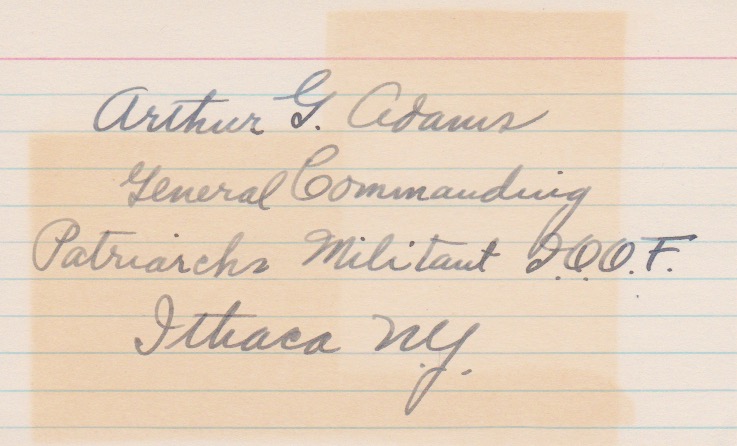 Arthur G. Adams
General Commanding
Patriarchs Militant I.O.O.F.
Ithaca N.Y.